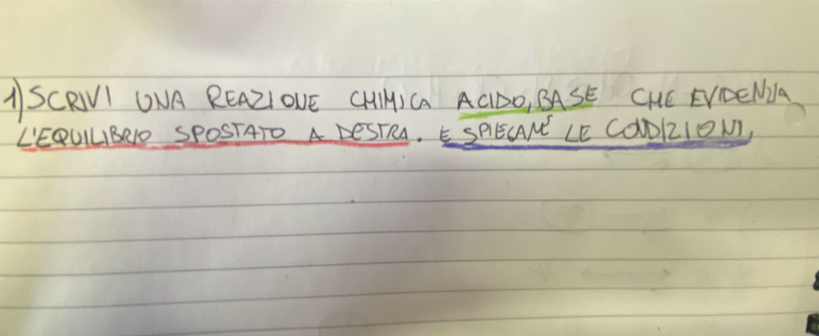 1) SCRIVI UNA REAZIONE CHIMICA ACIDO, BASE CHE EVIDENZIA
L'EQUILIBRIO SPOSTATO A DESTRA. E SPIEGANE LE CONDIZIONI.